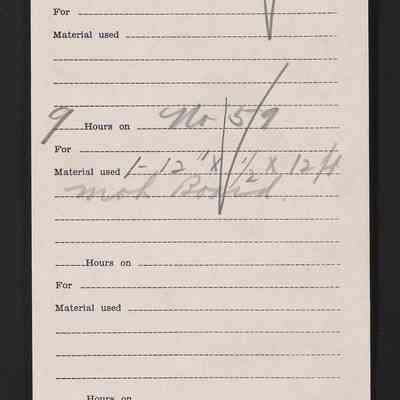 For
Material used
9 Hours on No 59
For
Material used 1-12" x 1/2 x 12 ft
Moh Board.
Hours on
For
Material used
Hours on